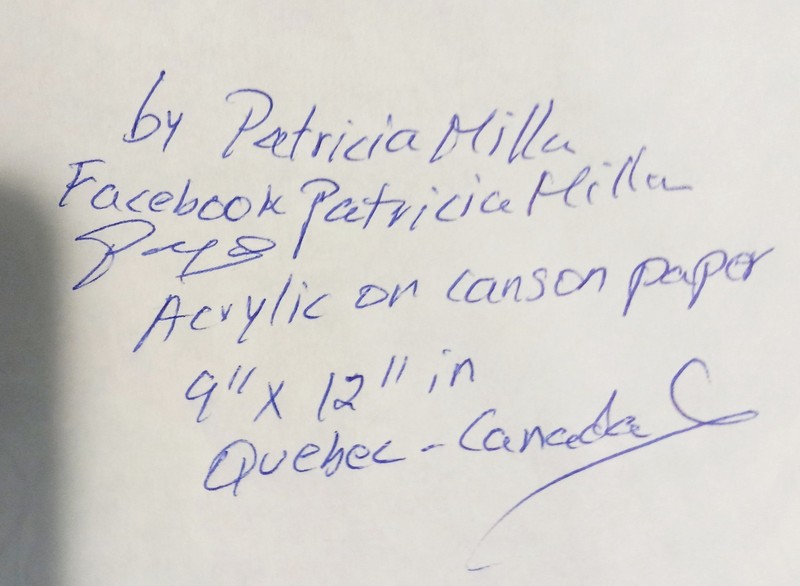 by Patricia Milla
Facebook Patricia Milla
Acrylic on canson paper
9" x 12" in
Quebec - Canada